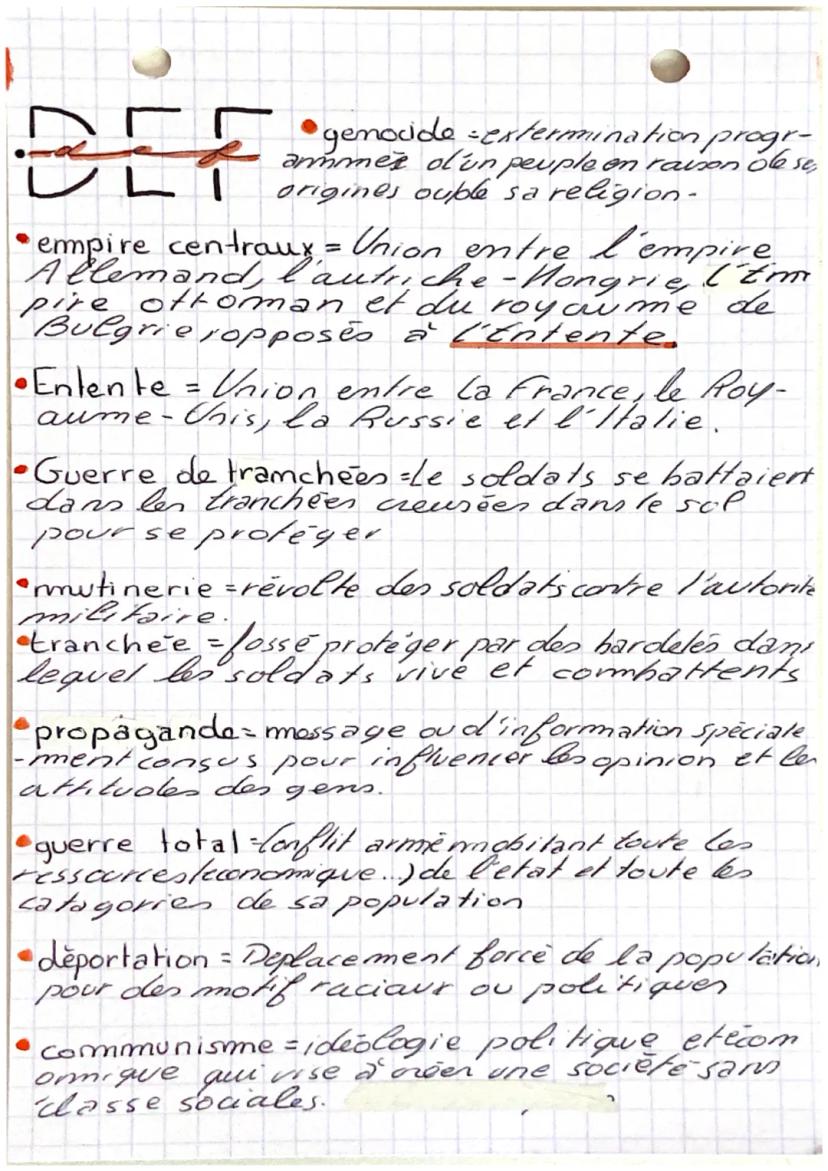 DEF
def
• genocide = extermination progr-
ammmée d'un peuple en raison de ses
origines ouble sa religion -
• empire centraux = Union entre l'empire
Allemand, l'autriche-Hongrie, l'Em
pire ottoman et du royaume de
Bulgrie, opposés à l'Entente.
• Entente = Union entre la France, le Roy-
aume-Unis, la Russie et l'Italie.
• Guerre de tramchées = Le soldats se battaient
dans les tranchées creusées dans le sol
pour se protéger
• mutinerie = révolte des soldats contre l'autorité
militaire.
• tranchée = fossé protéger par des bardelés dans
lequel les soldats vive et combattents
• propagande = message ou d'information spéciale
-ment conçus pour influencer les opinion et les
attitudes des gens.
• guerre total = Conflit armé mobilant toute les
ressources (economique...) de l'etat et toute les
catagories de sa population
• déportation = Deplacement forcé de la population
pour des motif raciaux ou politiques
• communisme = idéologie politique et écom
omique qui vise à créer une société sans
classe sociales.